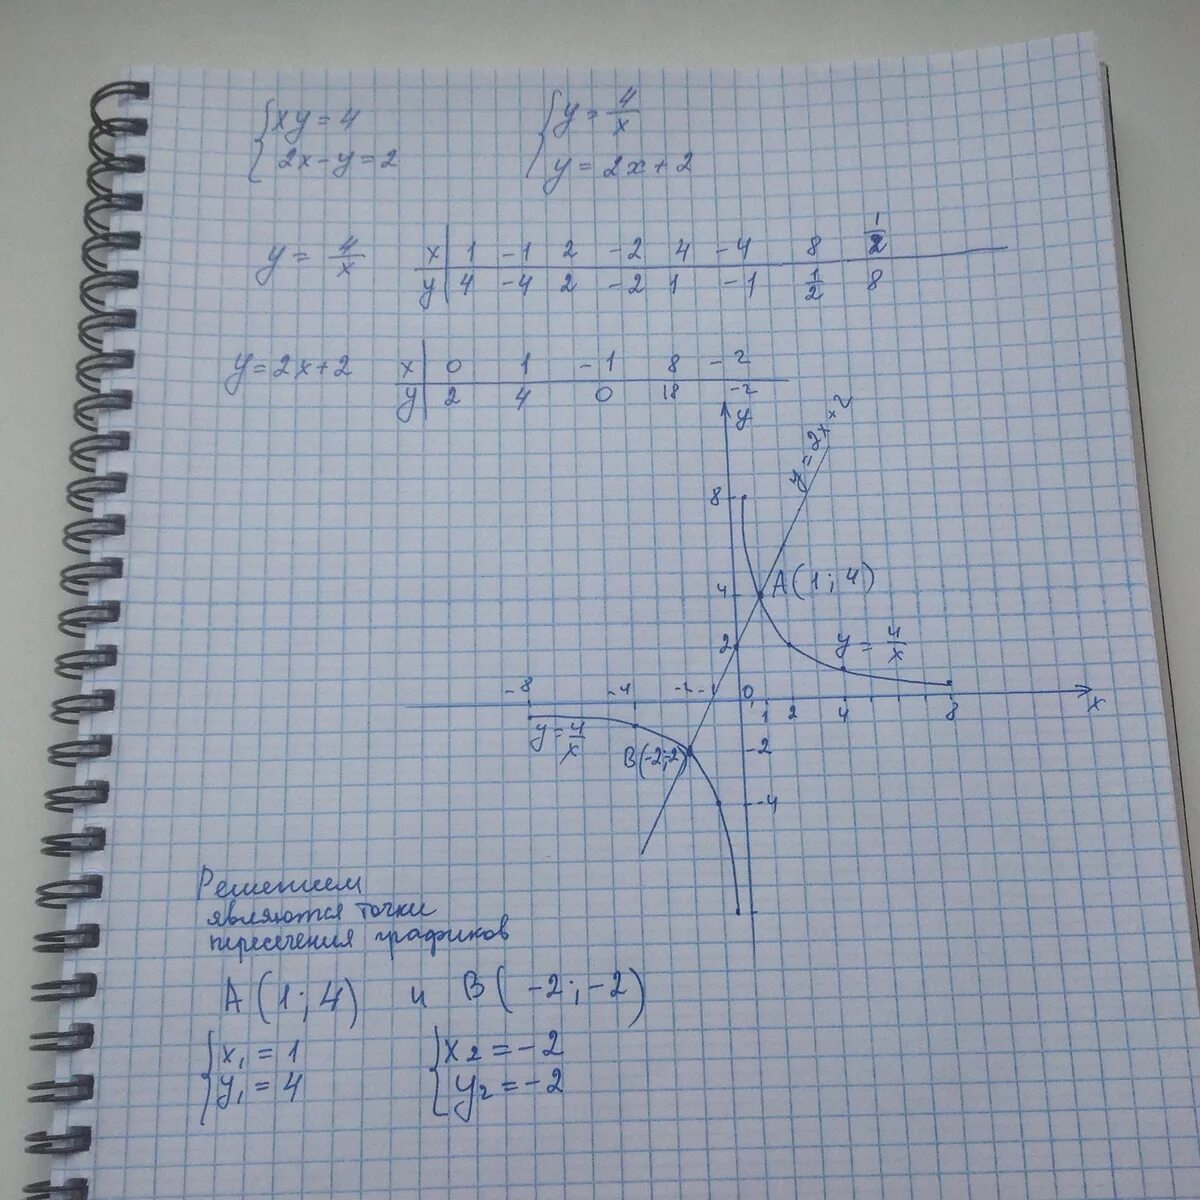 {xy = 4
{2x - y = 2
{y = 4/x
{y = 2x + 2
y = 4/x
x | 1 -1 2 -2 4 -4 8 1/2
y | 4 -4 2 -2 1 -1 1/2 8
y = 2x + 2
x | 0 1 -1 8 -2
y | 2 4 0 18 -2
y
8
4 A(1; 4)
2 y = 4/x
-8 -4 -2 -1 0 1 2 4 8 x
y = 4/x
B(-2;-2) -2
-4
Решением
являются точки
пересечения графиков
A(1; 4) и B(-2; -2)
{x₁ = 1
{y₁ = 4
{x₂ = -2
{y₂ = -2